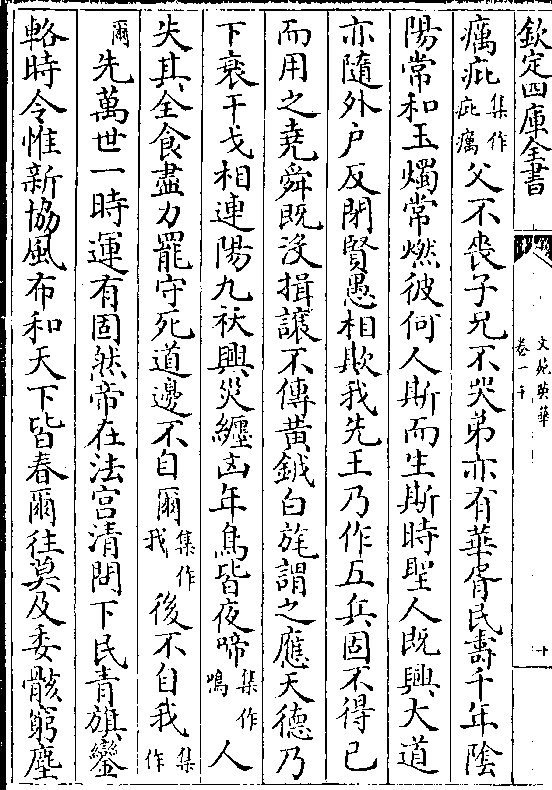 欽定四庫全書
文苑英華
卷一千
十
癘疵集作疵癘父不喪子兄不哭弟亦有華胥民壽千年陰
陽常和玉燭常燃彼何人斯而生斯時聖人既興大道
亦隨外户反閉賢愚相欺我先王乃作五兵固不得已
而用之堯舜既没揖讓不傳黄鉞白旄謂之應天德乃
下衰干戈相連陽九祅興災纒凶年鳥皆夜啼集作鳴人
失其全食盡力罷守死道邊不自爾集作我後不自我集作
爾先萬世一時運有固然帝在法宫清問下民青旗鑾
輅時令惟新協風布和天下皆春爾往莫及委骸窮塵